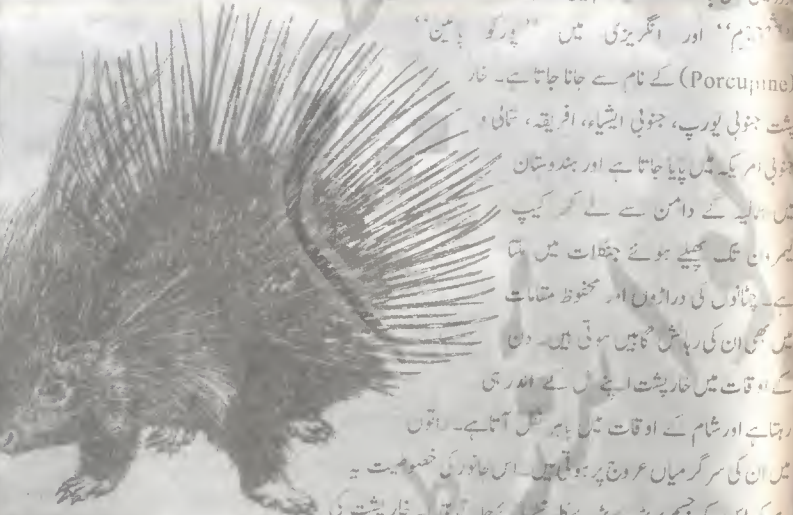 اور انگریزی میں ”پورکو پائین“
(Porcupine) کے نام سے جانا جاتا ہے۔ خار
پشت جنوبی یورپ، جنوبی ایشیاء، افریقہ، شمالی و
جنوبی امریکہ میں پایا جاتا ہے اور ہندوستان
میں ہمالیہ کے دامن سے لے کر کیپ
تک پھیلے ہوئے جنگلات میں ملتا
ہے۔ چٹانوں کی دراڑوں اور محفوظ مقامات
میں بھی ان کی رہائش گاہیں ہوتی ہیں۔ دن
کے اوقات میں خارپشت اپنے بل کے اندر ہی
رہتا ہے اور شام کے اوقات میں باہر نکل آتا ہے۔ راتوں
میں ان کی سرگرمیاں عروج پر ہوتی ہیں۔ اس جانور کی خصوصیت یہ